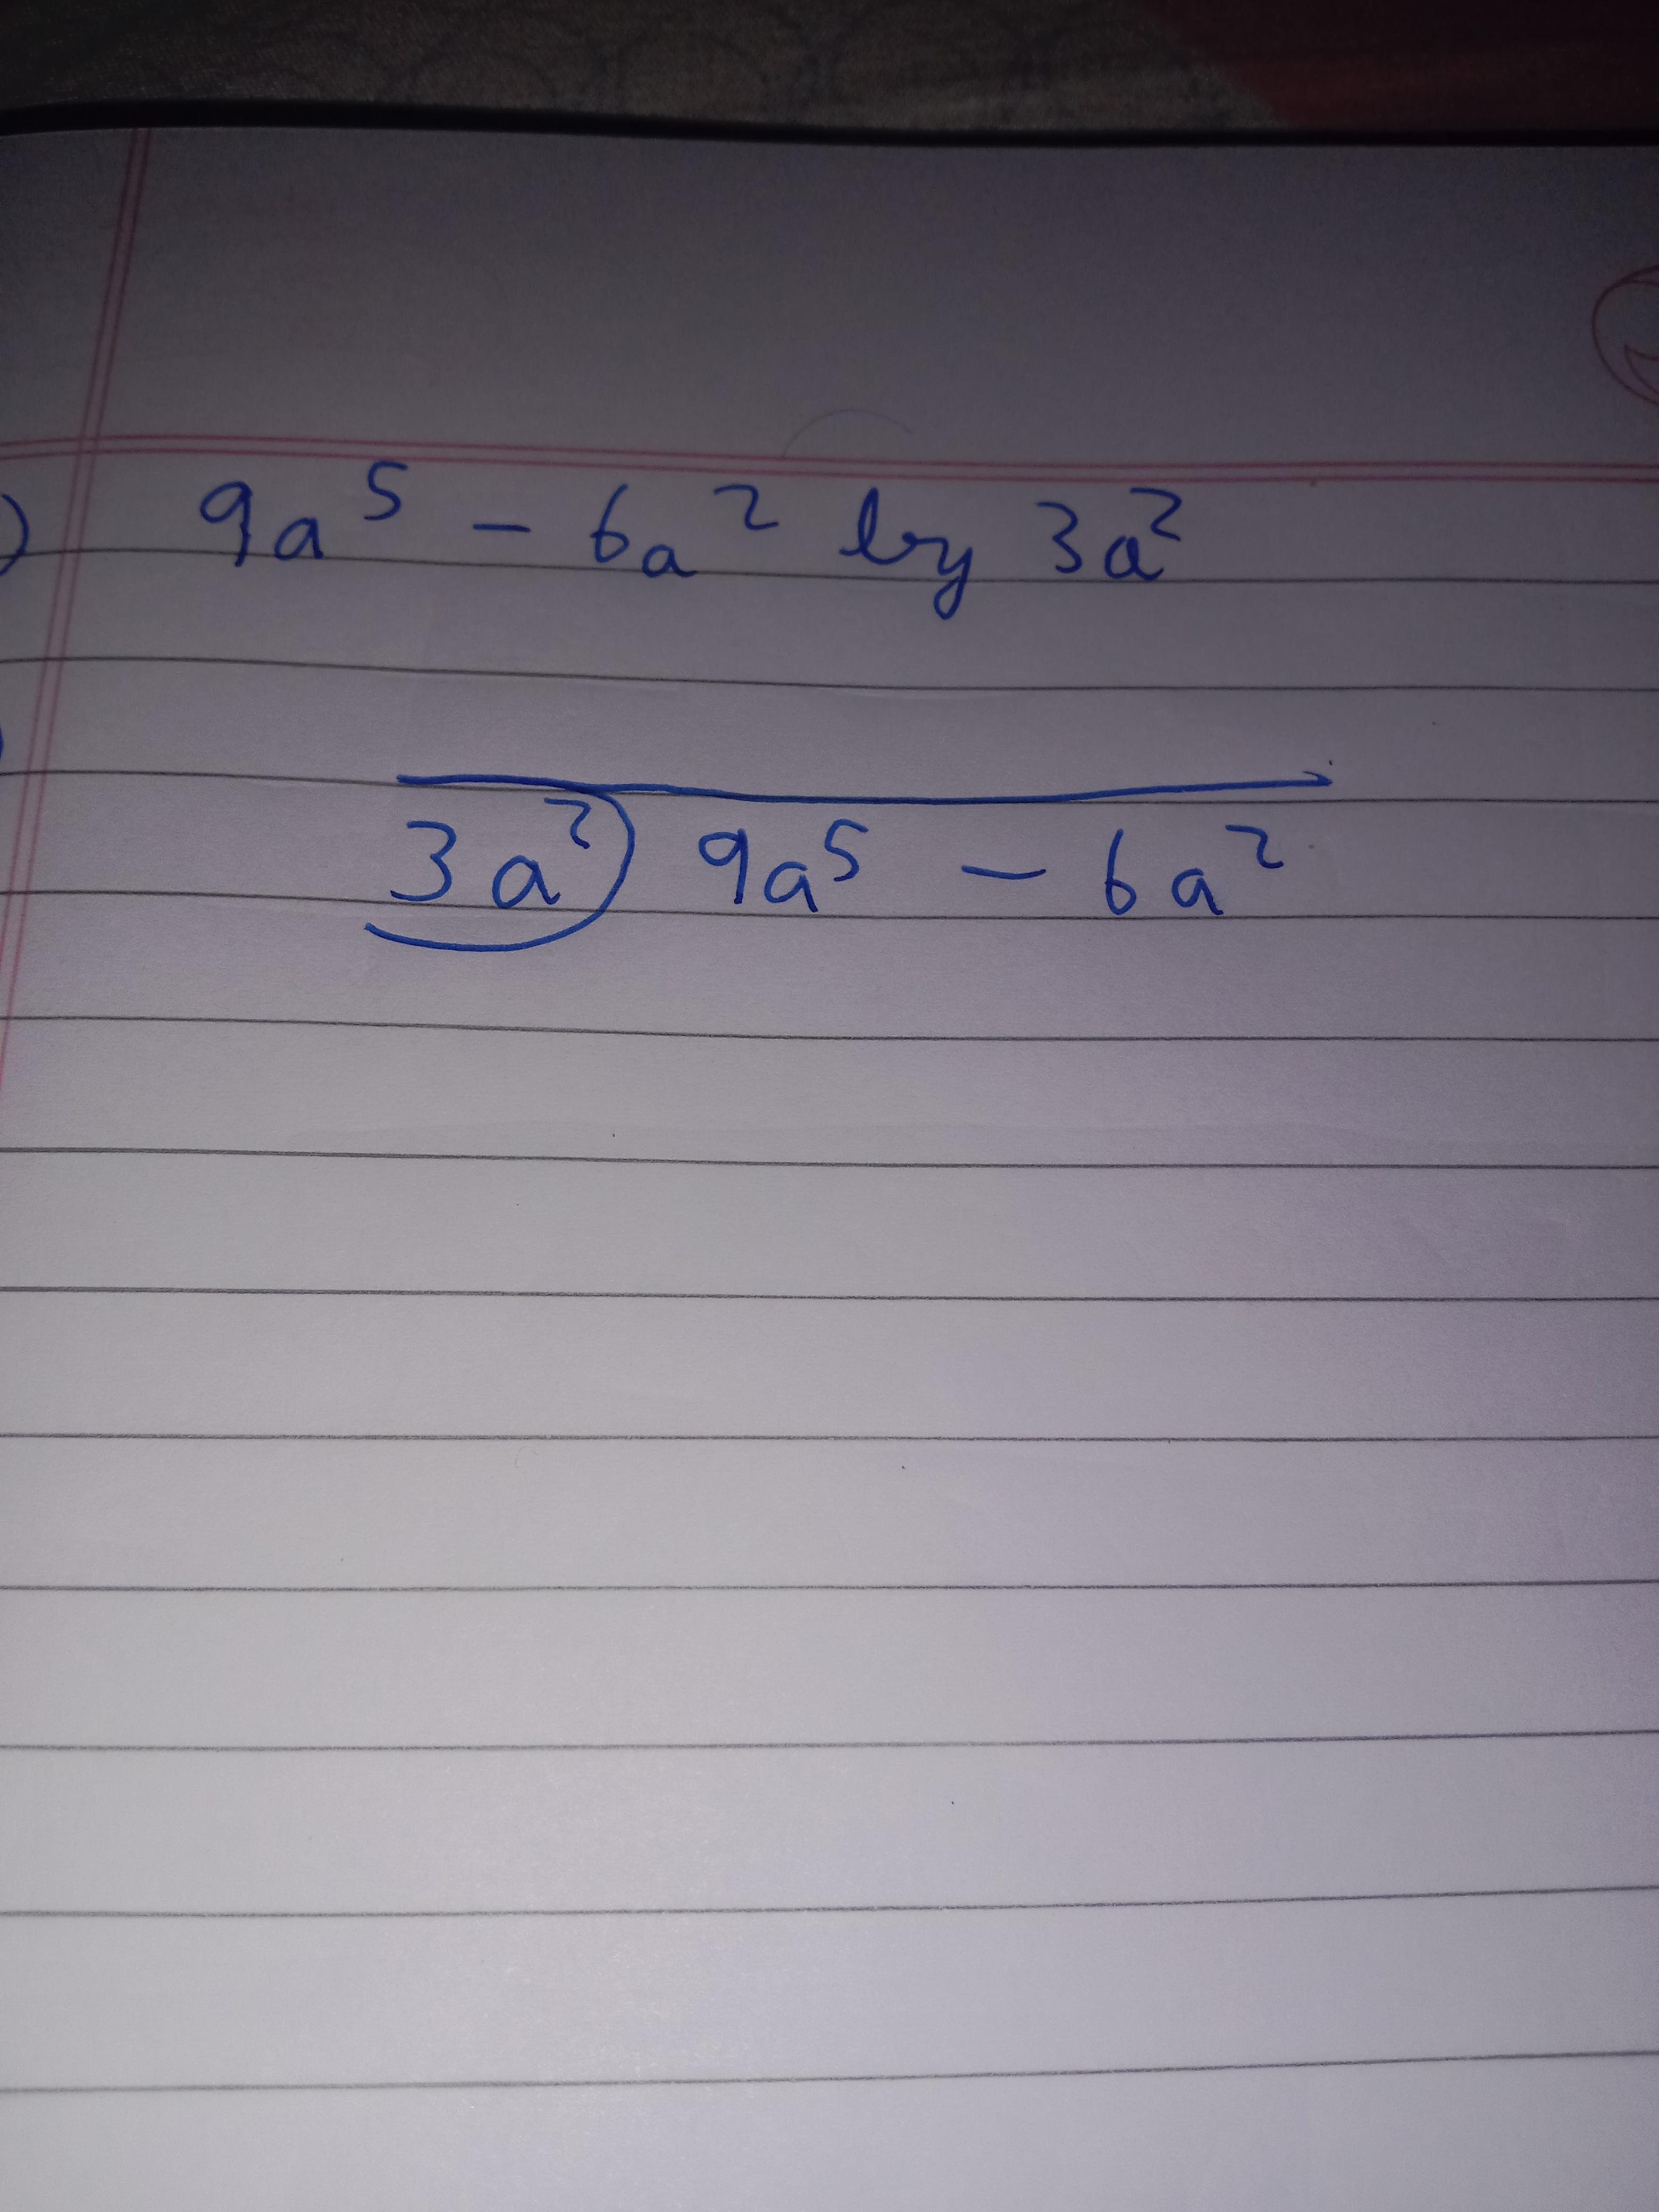 ) 9a⁵ - 6a² by 3a²
3a²) 9a⁵ - 6a²